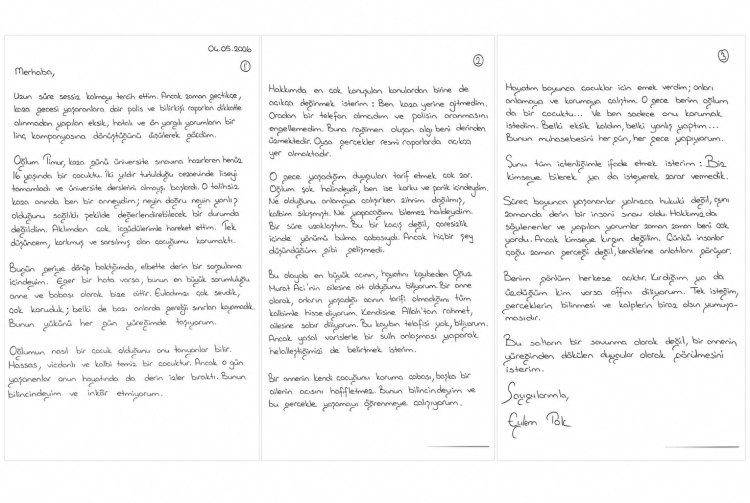 04.05.2006
①
Merhaba,
Uzun süre sessiz kalmayı tercih ettim. Ancak zaman geçtikçe,
kaza gecesi yaşananlara dair polis ve bilirkişi raporları dikkate
alınmadan yapılan eksik, hatalı ve ön yargılı yorumların bir
linç kampanyasına dönüştüğünü üzülerek gördüm.
Oğlum Timur, kaza günü üniversite sınavına hazırlanan henüz
16 yaşında bir çocuktu. İki yıldır tutulduğu cezaevinde liseyi
tamamladı ve üniversite derslerini almaya başlardı. O talihsiz
kaza anında ben bir anneydim; neyin doğru neyin yanlış
olduğunu sağlıklı şekilde değerlendirebilecek bir durumda
değildim. Aklımdan çok içgüdülerimle hareket ettim. Tek
düşüncem, korkmuş ve sarsılmış olan çocuğumu korumaktı.
Bugün geriye dönüp baktığımda, elbette derin bir sorgulama
içindeyim. Eğer bir hata varsa, bunun en büyük sorumluluğu
anne ve babası olarak bize aittir. Evladımızı çok sevdik,
çok koruduk; belki de bazı anlarda gereği sınırları koyamadık.
Bunun yükünü her gün yüreğimde taşıyorum.
Oğlumun nasıl bir çocuk olduğunu onu tanıyanlar bilir.
Hassas, vicdanlı ve kalbi temiz bir çocuktur. Ancak o gün
yaşananlar onun hayatında da derin izler bıraktı. Bunun
bilincindeyim ve inkâr etmiyorum.
②
Hakkımda en çok konuşulan konulardan birine de
açıkça değinmek isterim: Ben kaza yerine gitmedim.
Oradan bir telefon almadım ve polisin aranmasını
engellemedim. Buna rağmen oluşan algı beni derinden
üzmektedir. Oysa gerçekler resmi raporlarda açıkça
yer almaktadır.
O gece yaşadığım duyguları tarif etmek çok zor.
Oğlum şok halindeydi, ben ise korku ve panik içindeydim.
Ne olduğunu anlamaya çalışırken zihnim dağılmış,
kalbim sıkışmıştı. Ne yapacağımı bilemez haldeydim.
Bir süre uzaklaştım. Bu bir kaçış değil, çaresizlik
içinde yönümü bulma çabasıydı. Ancak hiçbir şey
düşündüğüm gibi gelişmedi.
Bu olayda en büyük acının, hayatını kaybeden Oğuz
Murat Aci'nin ailesine ait olduğunu biliyorum. Bir anne
olarak, onların yaşadığı acının tarifi olmadığını tüm
kalbimle hissediyorum. Kendisine Allah'tan rahmet,
ailesine sabır diliyorum. Bu kaybın telafisi yok, biliyorum.
Ancak yasal varislerle bir sulh anlaşması yaparak
helalleştiğimizi de belirtmek isterim.
Bir annenin kendi çocuğunu koruma çabası, başka bir
ailenin acısını hafifletmez. Bunun bilincindeyim ve
bu gerçekle yaşamayı öğrenmeye çalışıyorum.
③
Hayatım boyunca çocuklar için emek verdim; onları
anlamaya ve korumaya çalıştım. O gece benim oğlum
da bir çocuktu... Ve ben sadece onu korumak
istedim. Belki eksik kaldım, belki yanlış yaptım...
Bunun muhasebesini her gün, her gece yapıyorum.
Şunu tüm içtenliğimle ifade etmek isterim: Biz
kimseye bilerek ya da isteyerek zarar vermedik.
Süreç boyunca yaşananlar yalnızca hukuki değil, aynı
zamanda derin bir insani sınav oldu. Hakkımızda
söylenenler ve yapılan yorumlar zaman zaman beni çok
yordu. Ancak kimseye kırgın değilim. Çünkü insanlar
çoğu zaman gerçeği değil, kendilerine anlatılanı görüyor.
Benim gönlüm herkese açıktır. Kırdığım ya da
üzdüğüm kim varsa affını diliyorum. Tek isteğim,
gerçeklerin bilinmesi ve kalplerin biraz olsun yumuşa-
masıdır.
Bu satırların bir savunma olarak değil, bir annenin
yüreğinden dökülen duygular olarak görülmesini
isterim.
Saygılarımla,
Eylem Tok